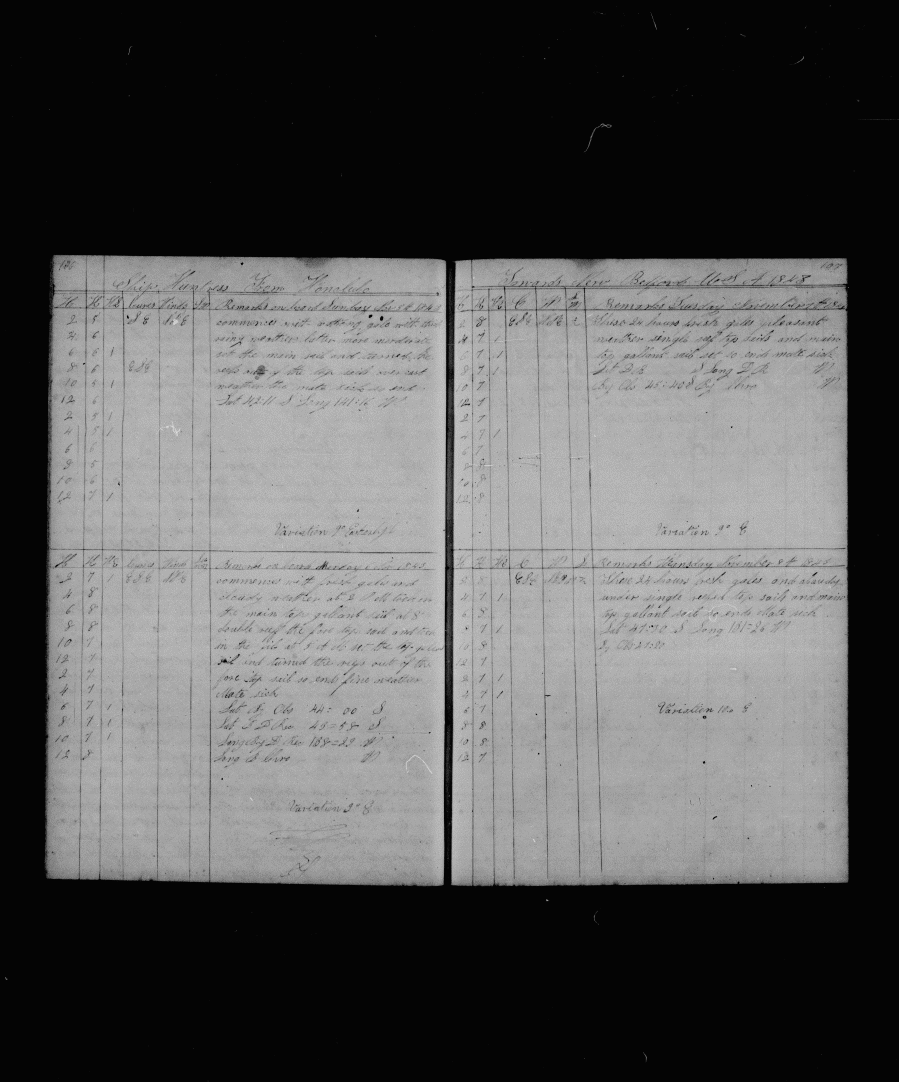 Ship Huntress From Honolulu
H K HK Courses Winds Remarks on board Sunday Nov 5th 1848
2 8 SE
commences with
weather latter more moderate
set the main sail and turned the
reefs out of the top sails overcast
weather the mate sick so ends
Lat 42-11 S Long 141-16 W
4 6
6 6 1
8 6 ESE
10 5 1
12 6
2 5 1
4 5 1
6 6
8 5
10 6
12 7 1
Variation 9° Easterly
H K HK Courses Winds Remarks on board Monday
2 7 1 ESE
commences with fresh gales and
cloudy weather at 2 P M took in
the main top gallant sail at 8
double reef the fore top sail and took
in the jib at 9 A M set the top gallant
sail and turned the reefs out of the
fore top sail so ends fine weather
Mate sick
Lat By Obs 44=00 S
Lat D Rec 43=58 S
Long By D Rec 138=29 W
Long By Chro W
4 8
6 8
8 8
10 7
12 7
2 7
4 7
6 7 1
8 7 1
10 7 1
12 8
Variation 9° E
Towards New Bedford U S A 1848
H K HK C W Remarks Tuesday November 7th
2 8 ESE
These 24 hours fresh gales pleasant
weather single reef top sails and main
top gallant sail set so ends mate sick
Lat D R S Long D R W
By Obs 45=40 S By Chro W
4 7 1
6 7 1
8 7 1
10 7
12 7
2 7
4 7 1
6 7
8 8
10 8
12 8
Variation 9° E
H K HK C W Remarks November 8th
2 8 ESE
These 24 hours fresh gales and cloudy
under single reefed top sails and main
top gallant sail so ends Mate sick
Lat S Long 131=26 W
By Obs
4 7 1
6 8
8 7 1
10 8
12 7
2 7 1
4 7 1
6 7
8 8
10 8
12 7
Variation 10° E